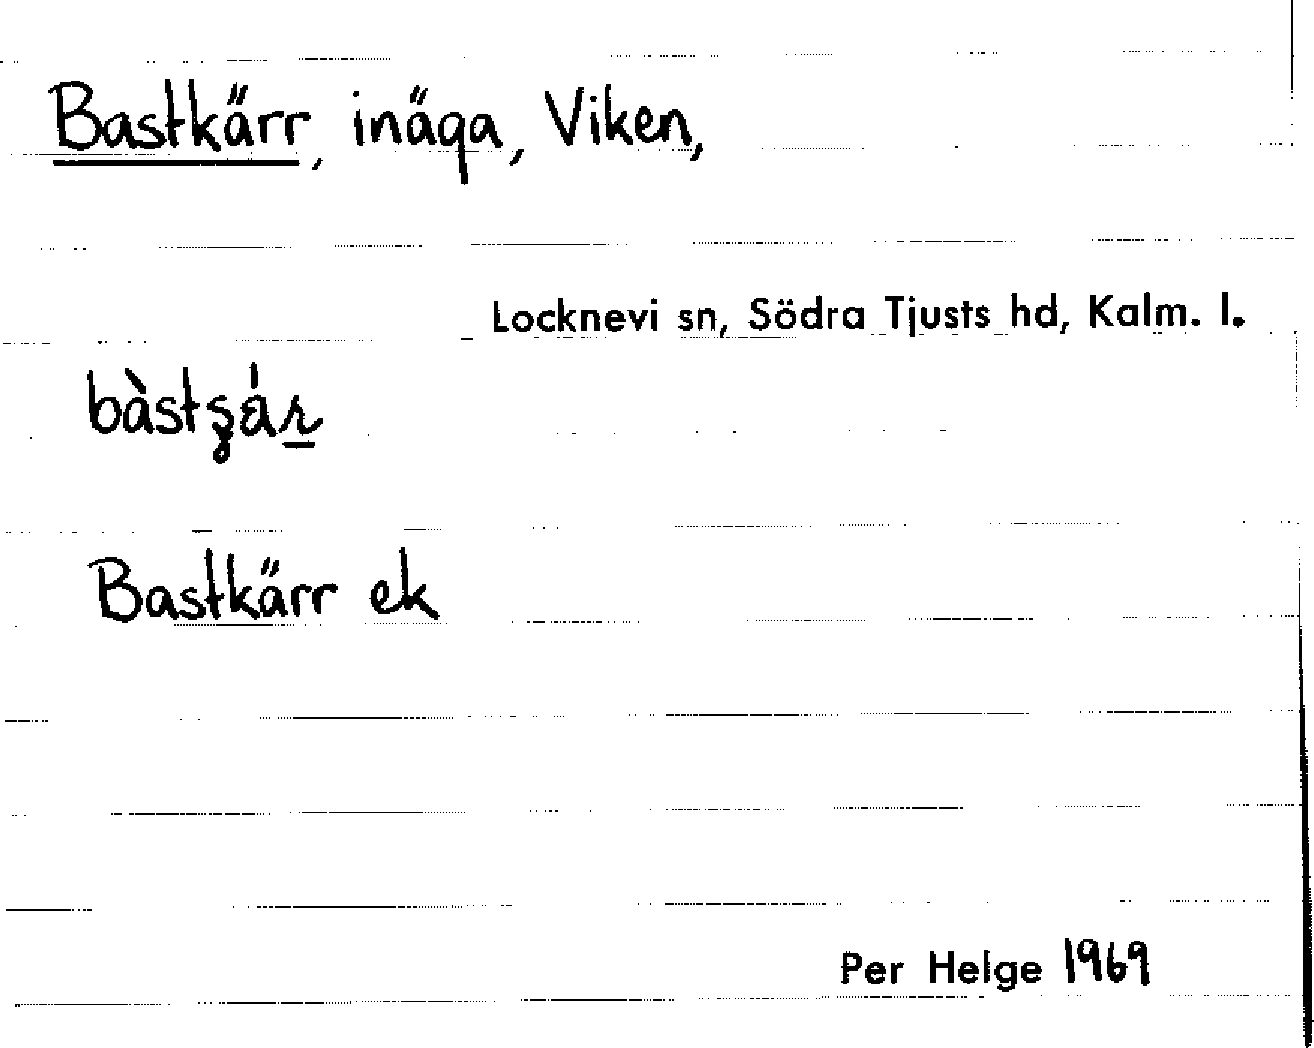 Bastkärr, inäga, Viken,
Locknevi sn, Södra Tjusts hd, Kalm. l.
Bastkärr ek
Per Helge 1969